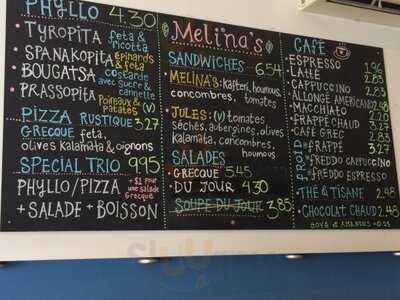 PHYLLO 4.30
TYROPITA feta & ricotta
SPANAKOPITA épinards & feta
BOUGATSA costarde avec sucre & cannelle
PRASSOPITA Poireaux & patates (V)
PIZZA RUSTIQUE 3.27
GRECQUE feta,
olives kalamata & oignons
SPECIAL TRIO 9.95
PHYLLO/PIZZA +$1 pour une salade Grecque
+ SALADE + BOISSON
Melina's
SANDWICHES 6.54
MELINA'S: kafteri, houmous
concombres, tomates
JULES: (V) tomates
séchés, aubergines, olives
Kalamata, concombres,
houmous
SALADES
GRECQUE 5.45
DU JOUR 4.30
SOUPE DU JOUR 3.85
CAFÉ
ESPRESSO 1.96
LATTÉ 2.83
CAPPUCCINO 2.83
ALLONGÉ AMERICANO 2.48
MACCHIATO 2.20
FRAPPÉ CHAUD 3.27
CAFÉ GREC 2.83
FROID
FRAPPÉ
FREDDO CAPPUCCINO
FREDDO ESPRESSO
THÉ & TISANE 2.48
CHOCOLAT CHAUD 2.48
SOYA & AMANDES +0.25